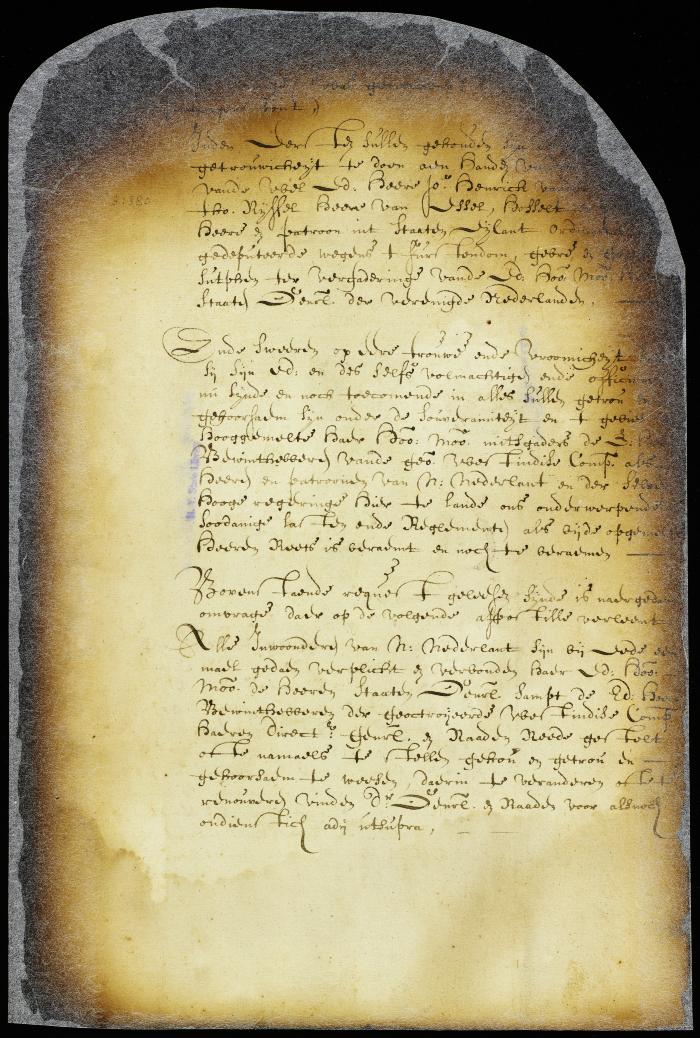 Inden eersten sullen gehouden syn
getrouwicheyt te doen aen handen van
vande wel Ed: heere Jor. Henrick van
tho. Nyssel heere van Essel, hasselt
heere en patroon int Staaten Eylant ordin
gedeputeerde wegens t furstendom, gebre en
Sutphen ter vergaderinge vande Ed: Hoo: Moo:
Staaten Genrl. der vereenigde Nederlanden,
Ende sweeren op eere trouwe ende vroomicheyt
sy syn Ed: en des selfs volmachtigen ende officie
nu synde en noch toecomende in alles sullen getrou
gehoorsaem syn onder de souverainiteyt en t gebiet
hooggemelte haer Hoo: Moo: mitsgaders de E:
Bewinthebberen vande geo: West indise Comp. als
heeren en patroonen van N: Nederlant en der selver
hooge regeringe hier te lande ons onderwerpende
soodanige lasten ende Reglementen als bijde opgemelte
heeren Reets is beraemt en noch te beraemen
Bovenstaende request gelesen synde is naer gedaen
omvrage daer op de volgende appostille verleent
Alle Inwoonderen van N: Nederlant syn bij eede een
mael gedaen verplicht en verbonden haer Ed: Hoo:
Moo: de heeren Staaten Genrl. sampt de Ed: heeren
Bewinthebberen der geoctroyeerde West indise Comp
haeren Directr: Genrl. en Raaden Reede gestelt
ofte namaels te stellen gehou en getrou en
gehoorsaem te weesen, daerin te veranderen ofte
renouveren vinden Dr. Genrl. en Raaden voor alsnoch
ondienstich adij utsupra,